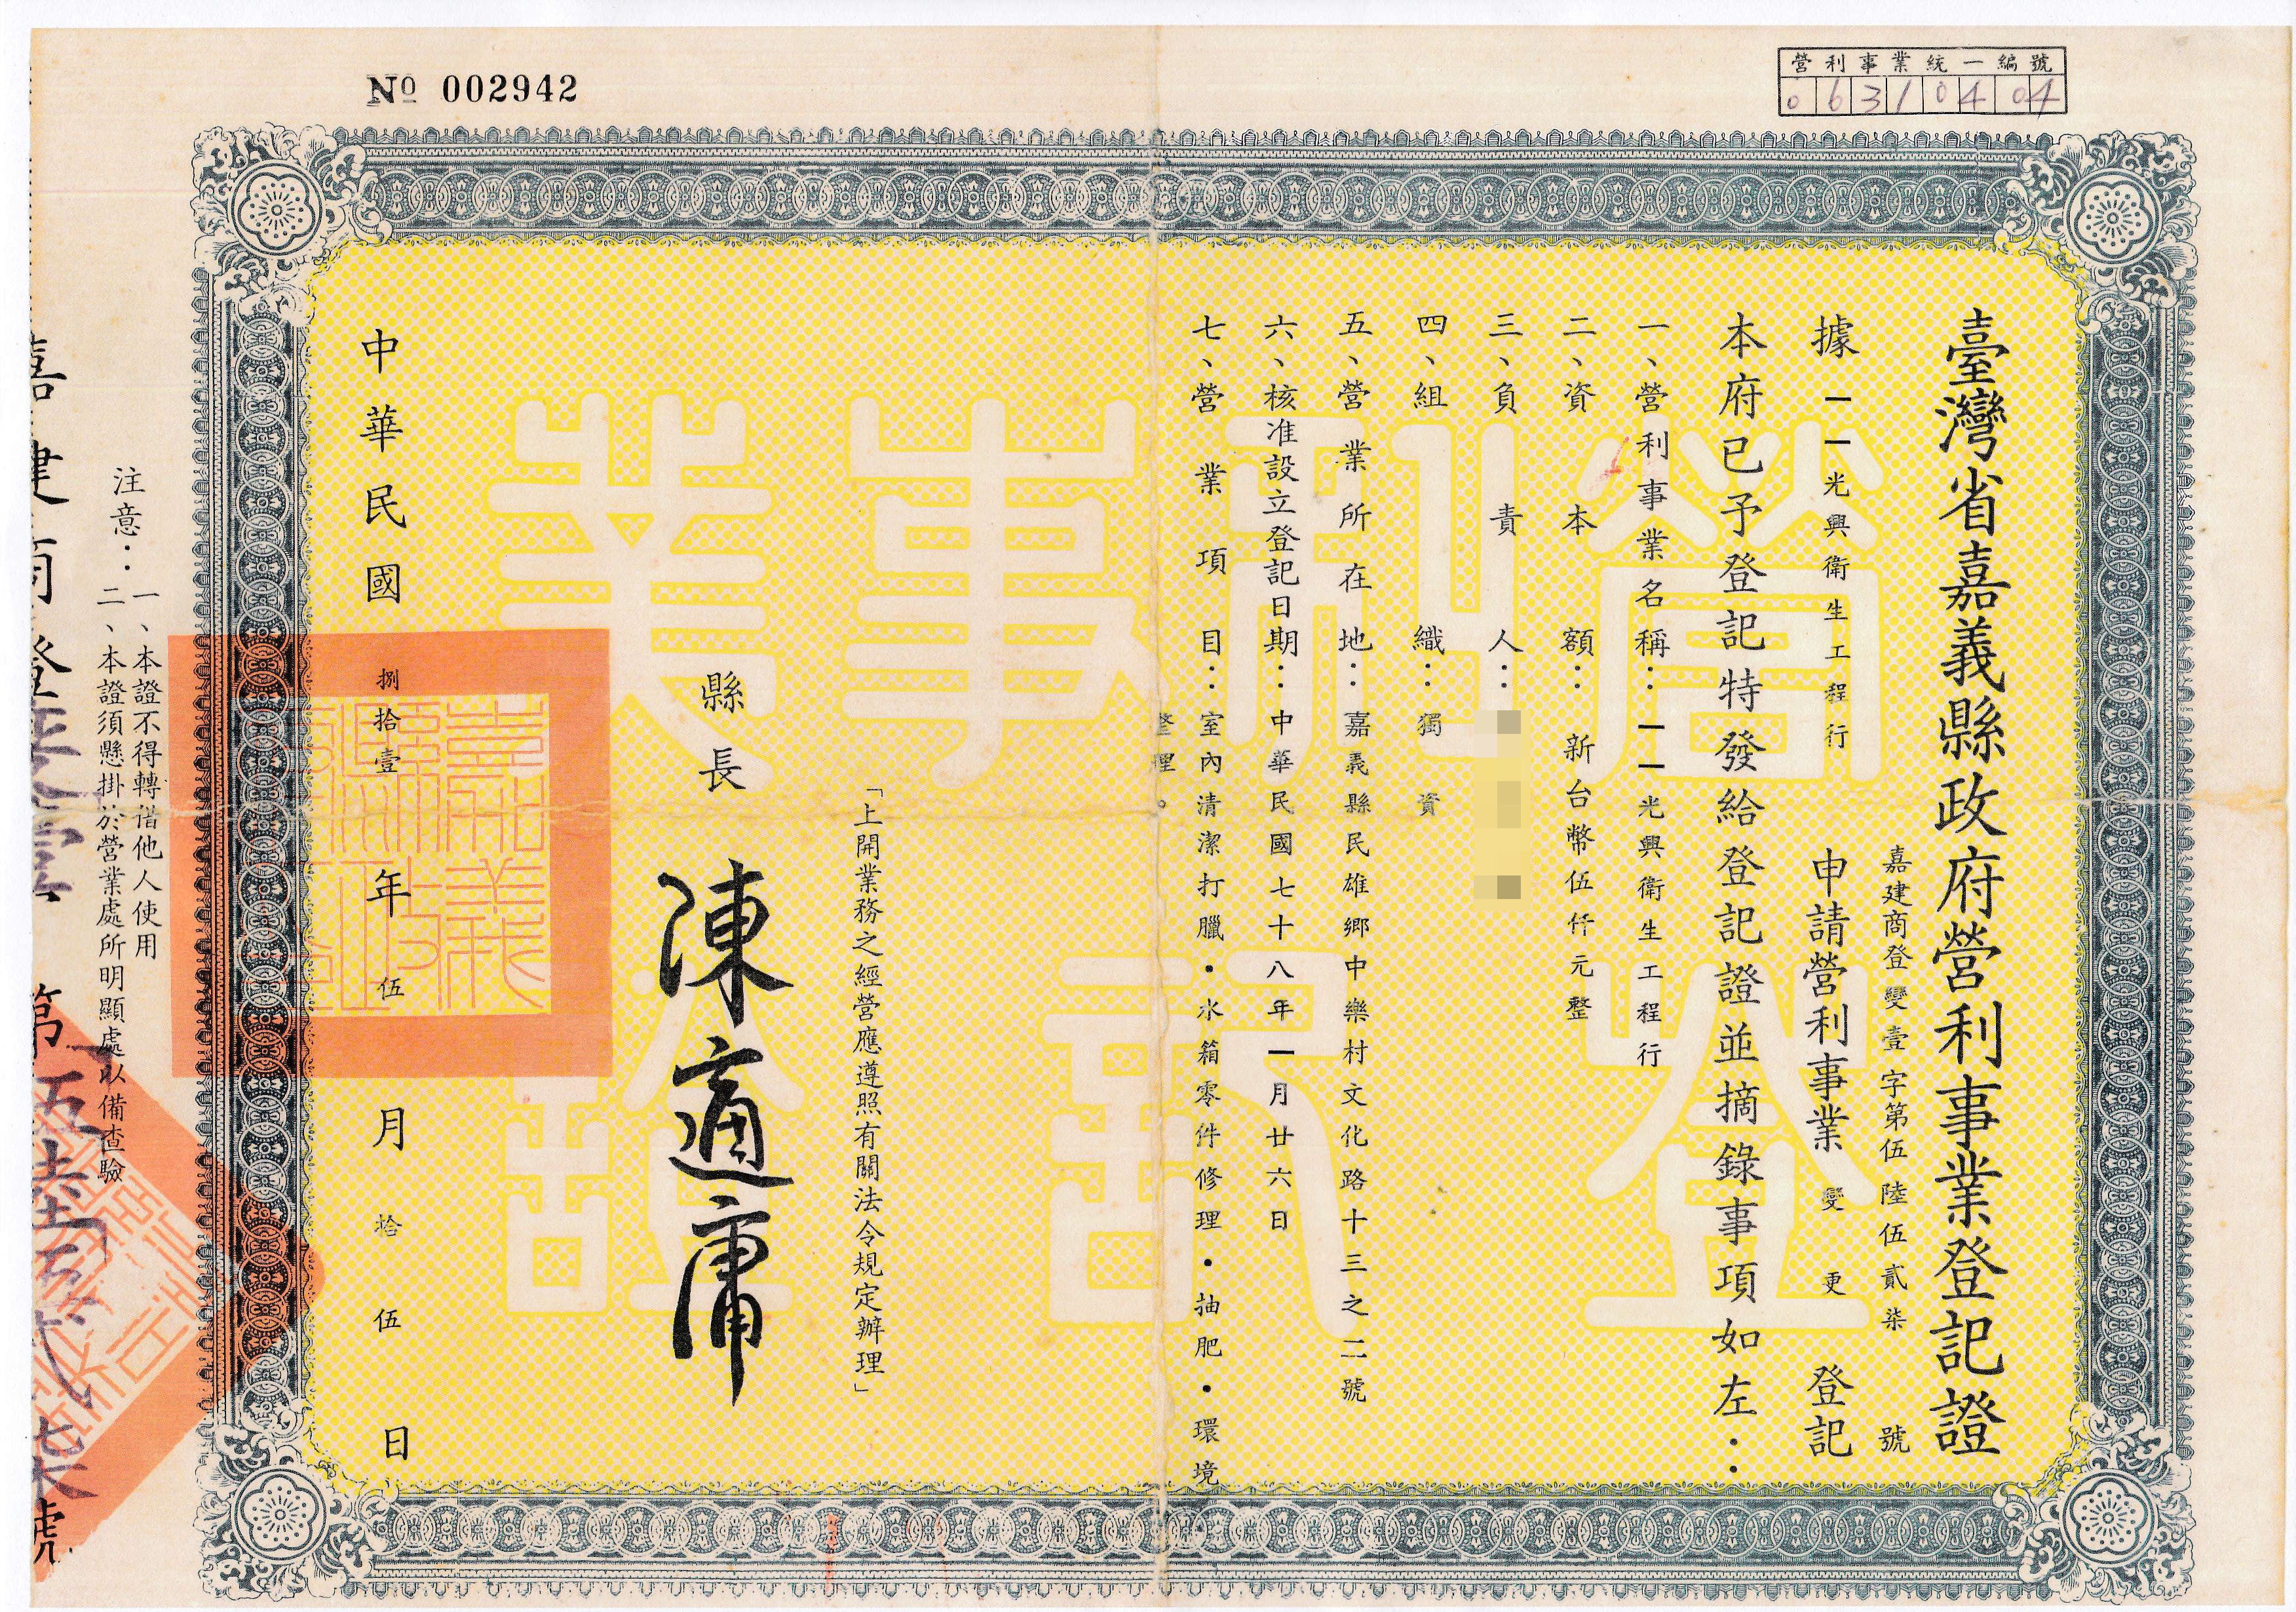 營利事業統一編號
06310404
№ 002942
臺灣省嘉義縣政府營利事業登記證
嘉建商登變壹字第伍陸伍貳柒號
據一一光興衛生工程行申請營利事業變更登記
本府已予登記特發給登記證並摘錄事項如左：
一、營利事業名稱：一一光興衛生工程行
二、資本額：新台幣伍仟元整
三、負責人：
四、組織：獨資
五、營業所在地：嘉義縣民雄鄉中樂村文化路十三之二號
六、核准設立登記日期：中華民國七十八年一月廿六日
七、營業項目：室內清潔打臘．水箱零件修理．抽肥．環境
整理。
「上開業務之經營應遵照有關法令規定辦理」
縣長 陳適庸
中華民國捌拾壹年伍月拾伍日
注意：一、本證不得轉借他人使用
二、本證須懸掛於營業處所明顯處以備查驗
營利事業登記證